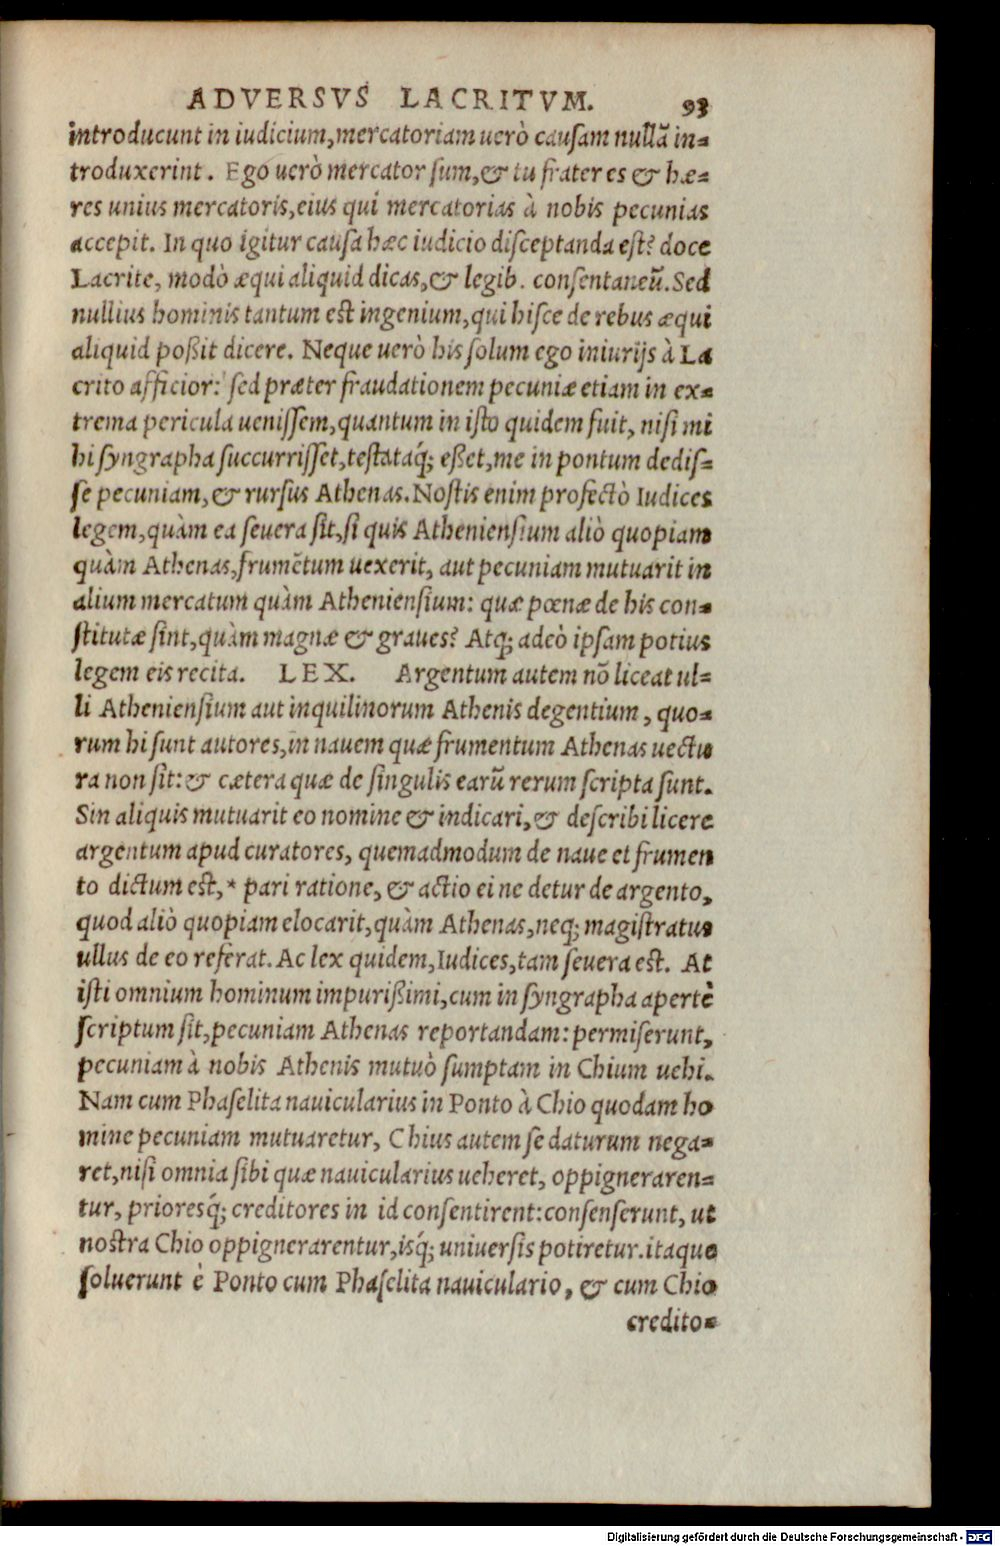 ADVERSVS LACRITVM. 93
introducunt in iudicium, mercatoriam uerò causam nullā in-
troduxerint. Ego uerò mercator sum, & tu frater es & hæ-
res unius mercatoris, eius qui mercatorias à nobis pecunias
accepit. In quo igitur causa hæc iudicio disceptanda est? doce
Lacrite, modò æqui aliquid dicas, & legib. consentaneū. Sed
nullius hominis tantum est ingenium, qui hisce de rebus æqui
aliquid poßit dicere. Neque uerò his solum ego iniurijs à La
crito afficior: sed præter fraudationem pecuniæ etiam in ex-
trema pericula uenissem, quantum in isto quidem fuit, nisi mi
hi syngrapha succurrisset, testataq́; eßet, me in pontum dedis-
se pecuniam, & rursus Athenas. Nostis enim profectò Iudices
legem, quàm ea seuera sit, si quis Atheniensium aliò quopiam
quàm Athenas, frumētum uexerit, aut pecuniam mutuarit in
alium mercatum quàm Atheniensium: quæ pœnæ de his con-
stitutæ sint, quàm magnæ & graues? Atq; adeò ipsam potius
legem eis recita. LEX. Argentum autem nō liceat ul-
li Atheniensium aut inquilinorum Athenis degentium, quo-
rum hi sunt autores, in nauem quæ frumentum Athenas uectu
ra non sit: & cætera quæ de singulis earū rerum scripta sunt.
Sin aliquis mutuarit eo nomine & indicari, & describi licere
argentum apud curatores, quemadmodum de naue et frumen
to dictum est, * pari ratione, & actio ei ne detur de argento,
quod aliò quopiam elocarit, quàm Athenas, neq; magistratus
ullus de eo referat. Ac lex quidem, Iudices, tam seuera est. At
isti omnium hominum impurißimi, cum in syngrapha apertè
scriptum sit, pecuniam Athenas reportandam: permiserunt,
pecuniam à nobis Athenis mutuò sumptam in Chium uehi.
Nam cum Phaselita nauicularius in Ponto à Chio quodam ho
mine pecuniam mutuaretur, Chius autem se daturum nega-
ret, nisi omnia sibi quæ nauicularius ueheret, oppigneraren-
tur, prioresq́; creditores in id consentirent: consenserunt, ut
nostra Chio oppignerarentur, isq́; uniuersis potiretur. itaque
soluerunt è Ponto cum Phaselita nauiculario, & cum Chio
credito-
Digitalisierung gefördert durch die Deutsche Forschungsgemeinschaft - DFG